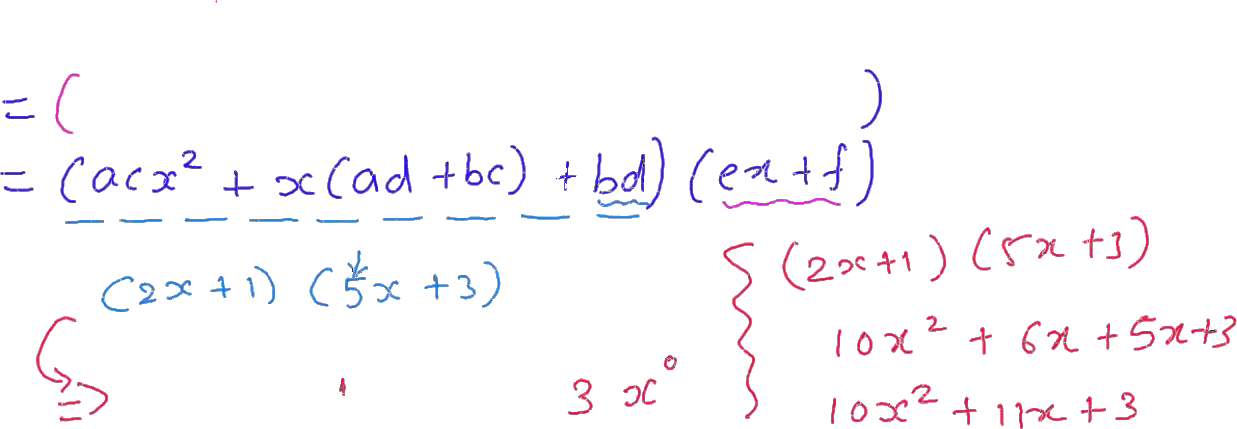 = ( )
= (acx² + x(ad + bc) + bd) (ex + f)
(2x + 1) (5x + 3)
= 3 x⁰
(2x+1) (5x+3)
10x² + 6x + 5x+3
10x² + 11x + 3